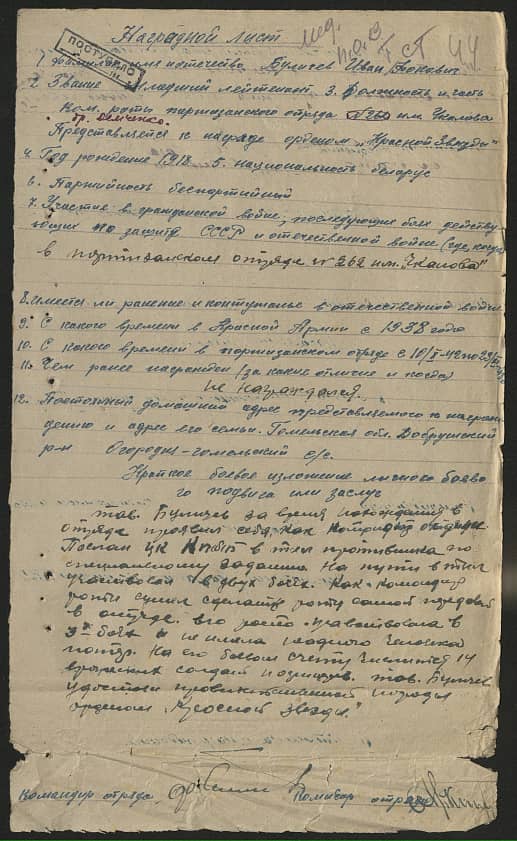 Наградной лист
ПОСТУПИЛО
44
1. Фамилия имя отчество Булычев Иван
2 Звание Младший лейтенант 3. Должность и часть
Ком. роты партизанского отряда №262 им Чкалова
Представляется к награде орденом „Красной Звезды"
4. Год рождения 1918 5. национальность беларус
6. Партийность беспартийный
7. Участие в гражданской войне, последующих боях действу
ющих по защите СССР и отечественной войне (где, когда)
в партизанском отряде № 262 им. Чкалова"
8. Имеет ли ранение и контузию в отечественной войне
9. С какого времени в Красной Армии с 1938 года
10. С какого времени в партизанском отряде с
11. Чем ранее награжден (за какие отличия и когда)
не награждался.
12. Постоянный домашний адрес представляемого к награж
дению и адрес его семьи. Гомельская обл. Добрушский
р-н Огородня-гомельский с/с.
Краткое боевое изложение личного боево
го подвига или заслуг
тов. Булычев за время нахождения в
отряде проявил себя как
Послан ЦК КП(б)Б в тыл противника по
специальному заданию. На пути в тыл
участвовал в двух боях. Как командир
роты сумел сделать роту самой передовой
в отряде. его рота участвовала в
боях и не имела ни одного человека
потер. На его боевом счету числится 14
вражеских солдат и офицеров. тов. Булычев
удостоен правительственной награды
орденом „Красной Звезды"
Командир отряда Комисар отряда